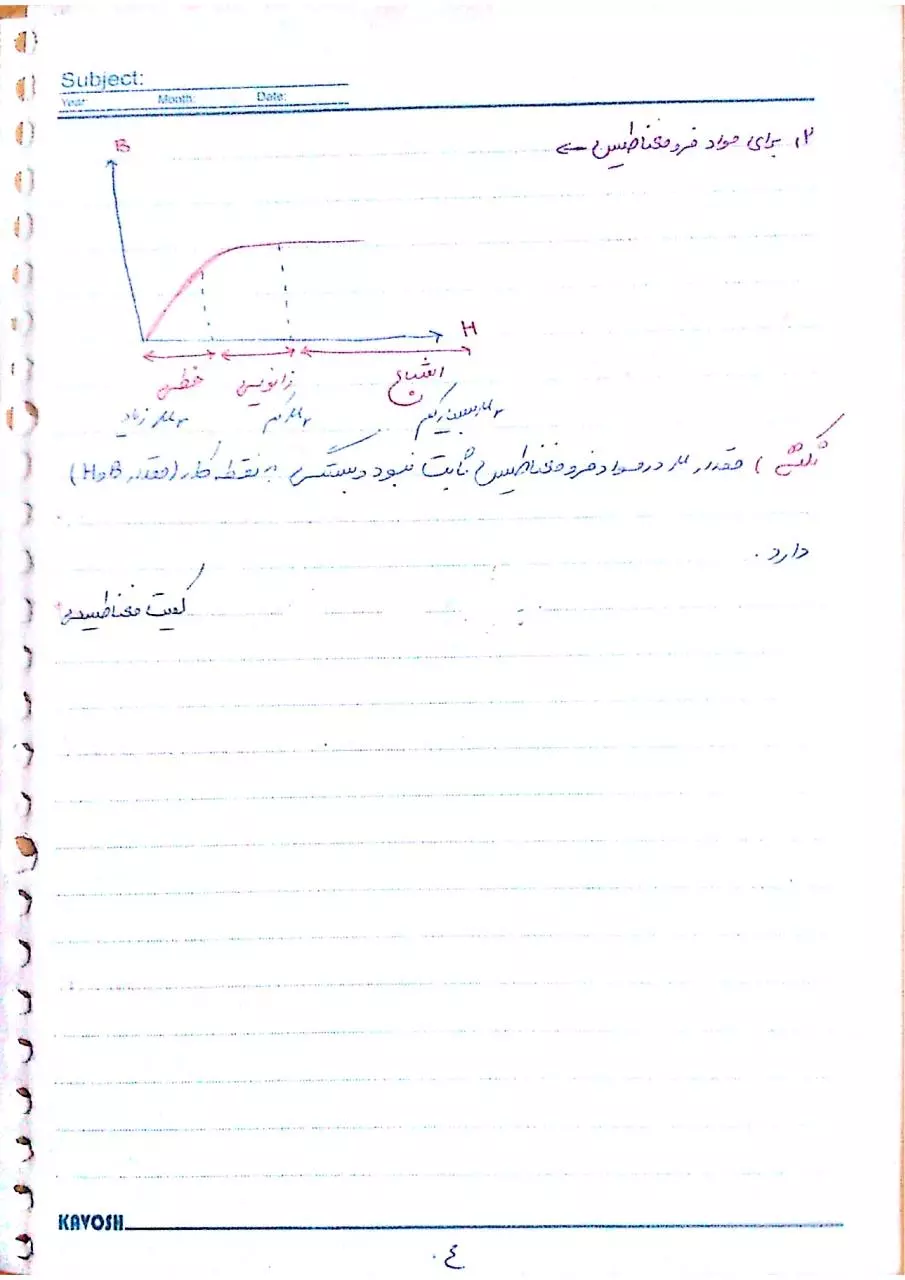 Subject:
Year: Month: Date:
۲) برای مواد فرومغناطیس ←
B
H
خطی زانویی اشباع
μ زیاد μ کم μ بسیار کم
نکته ) مقدار μ در مواد فرومغناطیس ثابت نبوده و بستگی به نقطه کار (مقدار B و H)
دارد .
کمیت مغناطیسی
KAVOSH
٤